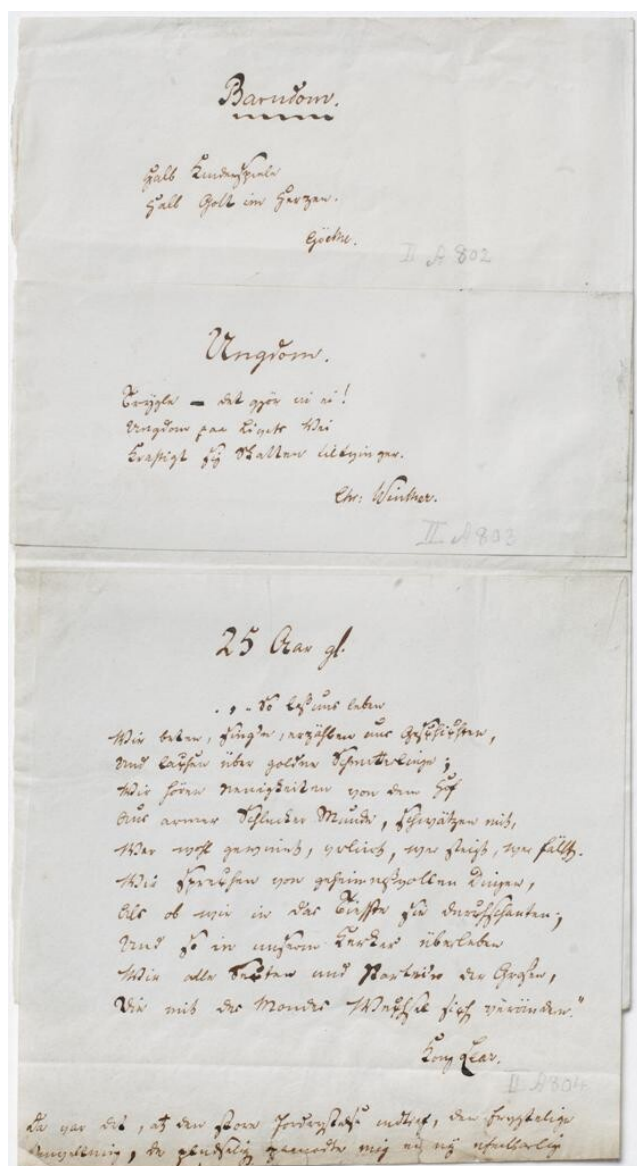 Barndom.
Halb Kinderspiele
Halb Gott im Herzen.
Göethe.
II A 802
Ungdom.
Trygle – det gjør vi ei!
Ungdom paa Livets Vei
Kraftigt sig Skatten tiltvinger.
Chr: Winther.
II A 803
25 Aar gl.
. , „ So laß uns leben
Wir beten, singen, erzählen uns Geschichten,
Und lachen über goldne Schmetterlinge;
Wir hören Neuigkeiten von dem Hof
Aus armer Schlucker Munde, schwätzen mit,
Wer wohl gewinnt, verliert, wer steigt, wer fällt.
Wir sprechen von geheimnißvollen Dingen,
Als ob wir in das Tiefste sie durchschauten;
Und so in unserm Kerker überleben
Wir alle Sekten und Partein der Großen,
Die mit des Mondes Wechsel sich verändern."
Kong Lear.
II A 804
Da var det, at den store Jordrystelse indtraf, den frygtelige
Omvæltning, der pludselig paanødte mig en ny ufeilbarlig